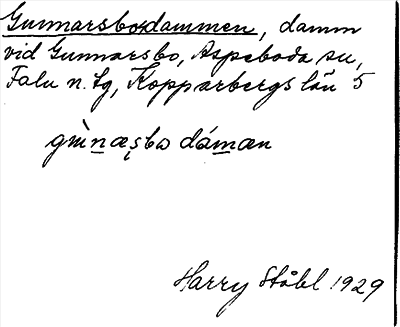 Gunnarsbodammen, damm
vid Gunnarsbo, Aspeboda sn,
Falu n. tg, Kopparbergs län 5
dáman
Harry Ståhl 1929